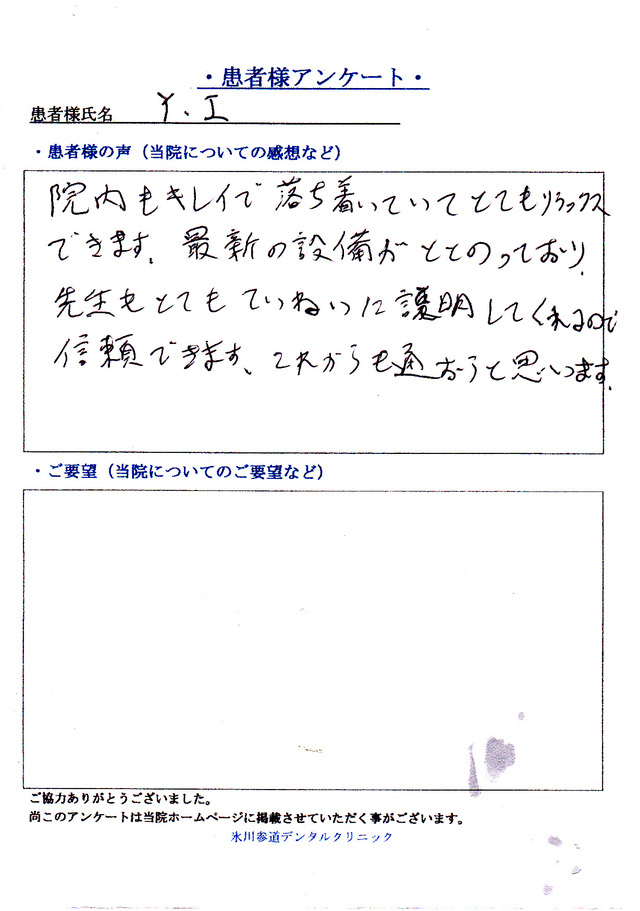 ・患者様アンケート・
患者様氏名 Y.I
・患者様の声（当院についての感想など）
院内もキレイで落ち着いていてとてもリラックス
できます。最新の設備がととのっており、
先生もとてもていねいに説明してくれるので
信頼できます。これからも通おうと思います。
・ご要望（当院についてのご要望など）
ご協力ありがとうございました。
尚このアンケートは当院ホームページに掲載させていただく事がございます。
氷川参道デンタルクリニック